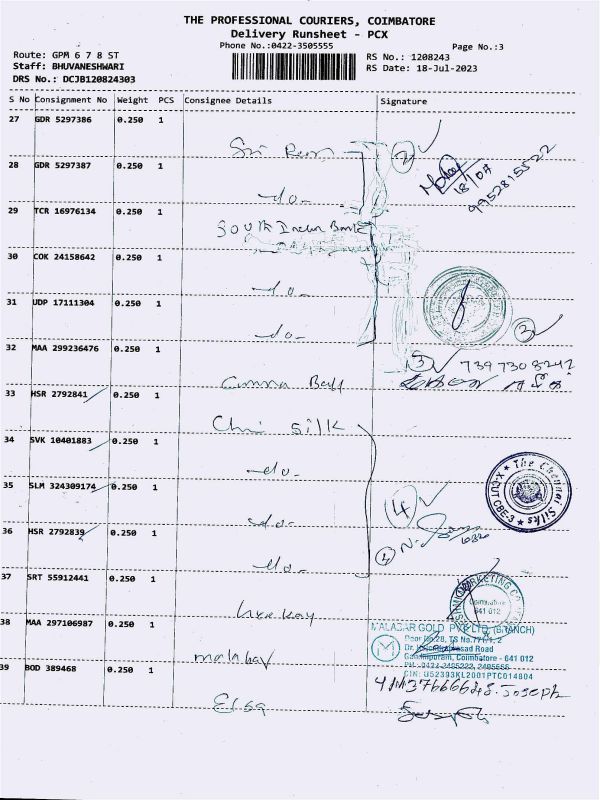 THE PROFESSIONAL COURIERS, COIMBATORE
Delivery Runsheet - PCX
Phone No.:0422-3505555
Page No.:3
Route: GPM 6 7 8 ST
RS No.: 1208243
Staff: BHUVANESHWARI
RS Date: 18-Jul-2023
DRS No.: DCJB120824303
S No Consignment No Weight PCS Consignee Details Signature
27 GDR 5297386 0.250 1
Sri
2
18/07
9952815522
28 GDR 5297387 0.250 1
-do-
29 TCR 16976134 0.250 1
South Indian Bank
30 COK 24158642 0.250 1
-do-
31 UDP 17111304 0.250 1
-do-
3
32 MAA 299236476 0.250 1
3 7397308242
33 HSR 2792841 0.250 1
Silk
34 SVK 10401883 0.250 1
-do-
35 SLM 324309174 0.250 1
-do-
The Chennai Silks
X-CUT CBE-3
4
36 HSR 2792839 0.250 1
-do-
4
37 SRT 55912441 0.250 1
Coimbatore
641 012
38 MAA 297106987 0.250 1
malabar
MALABAR GOLD PVT LTD (BRANCH)
Door No.28, TS No.771/1, 2
Dr. Rajendraprasad Road
Gandhipuram, Coimbatore - 641 012
CIN: U52393KL2001PTC014804
39 BOD 389468 0.250 1
Joseph